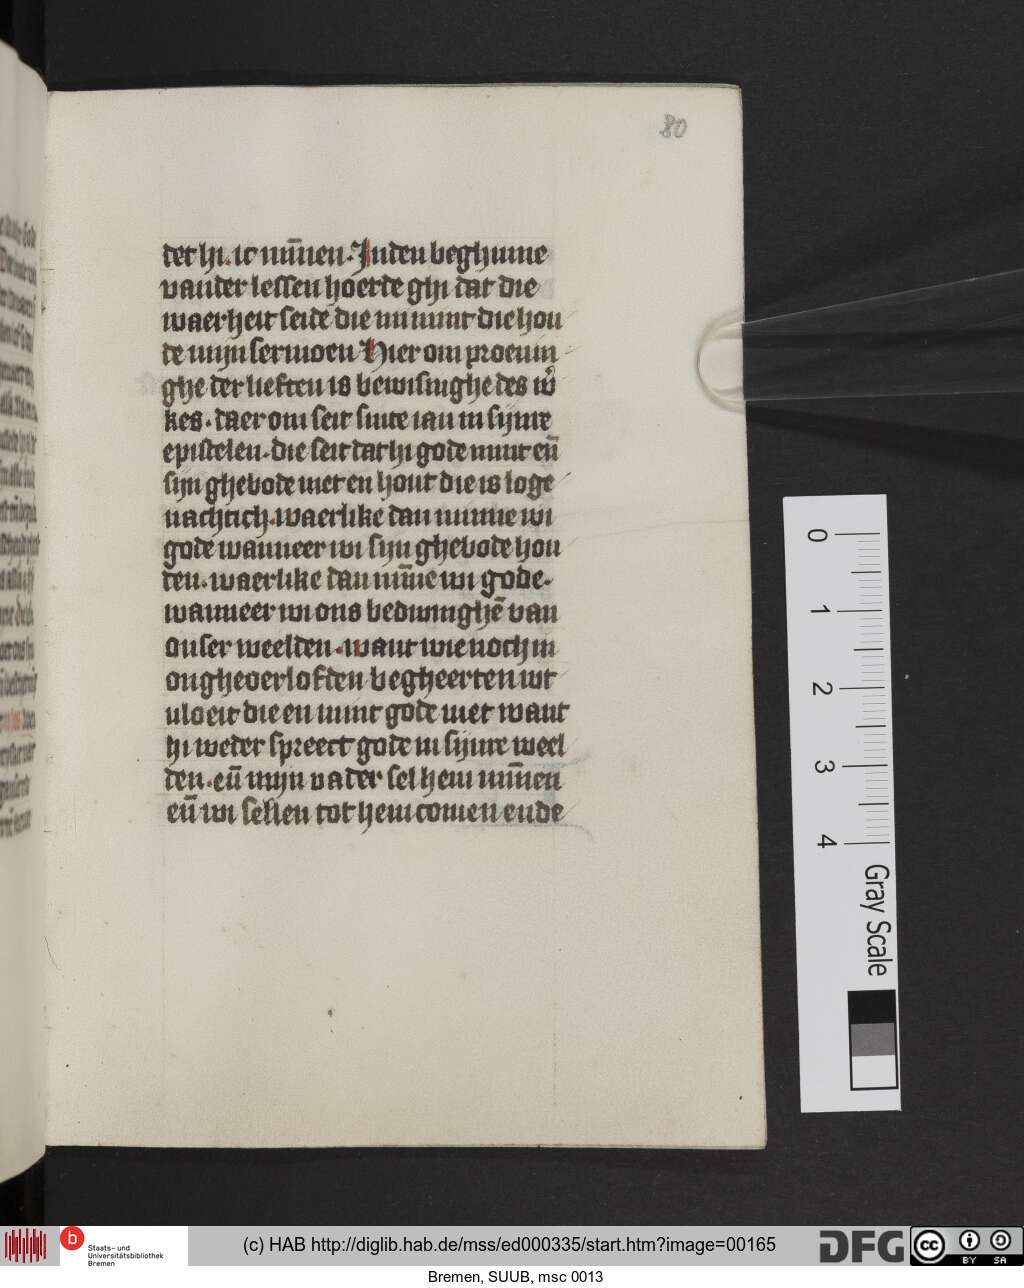 80
det hi. ic mīnen. Inden beghinne
vander lessen hoerde ghi dat die
waerheit seide die mi mint die hou
de mijn sermoen Hier om proeuin
ghe der lieften is bewisinghe des w̉
kes. daer om seit sinte ian in sijnre
epistelen. die seit dat hi gode mint eñ
sijn ghebode niet en hout die is loge
nachtich. waerlike dan minne wi
gode wanneer wi sijn ghebode hou
den. waerlike dan mīne wi gode.
wanneer wi ons bedwinghē van
onser weelden. want wie noch in
ongheoerlofden begheerten wt
vloeit die en mint gode niet want
hi weder spreect gode in sijnre weel
den. eñ mijn vader sel hem mīnen
eñ wi sellen tot hem comen ende
0
1
2
3
4
Gray Scale
b Staats- und
Universitätsbibliothek
Bremen
(c) HAB http://diglib.hab.de/mss/ed000335/start.htm?image=00165
DFG
cc BY SA
Bremen, SUUB, msc 0013